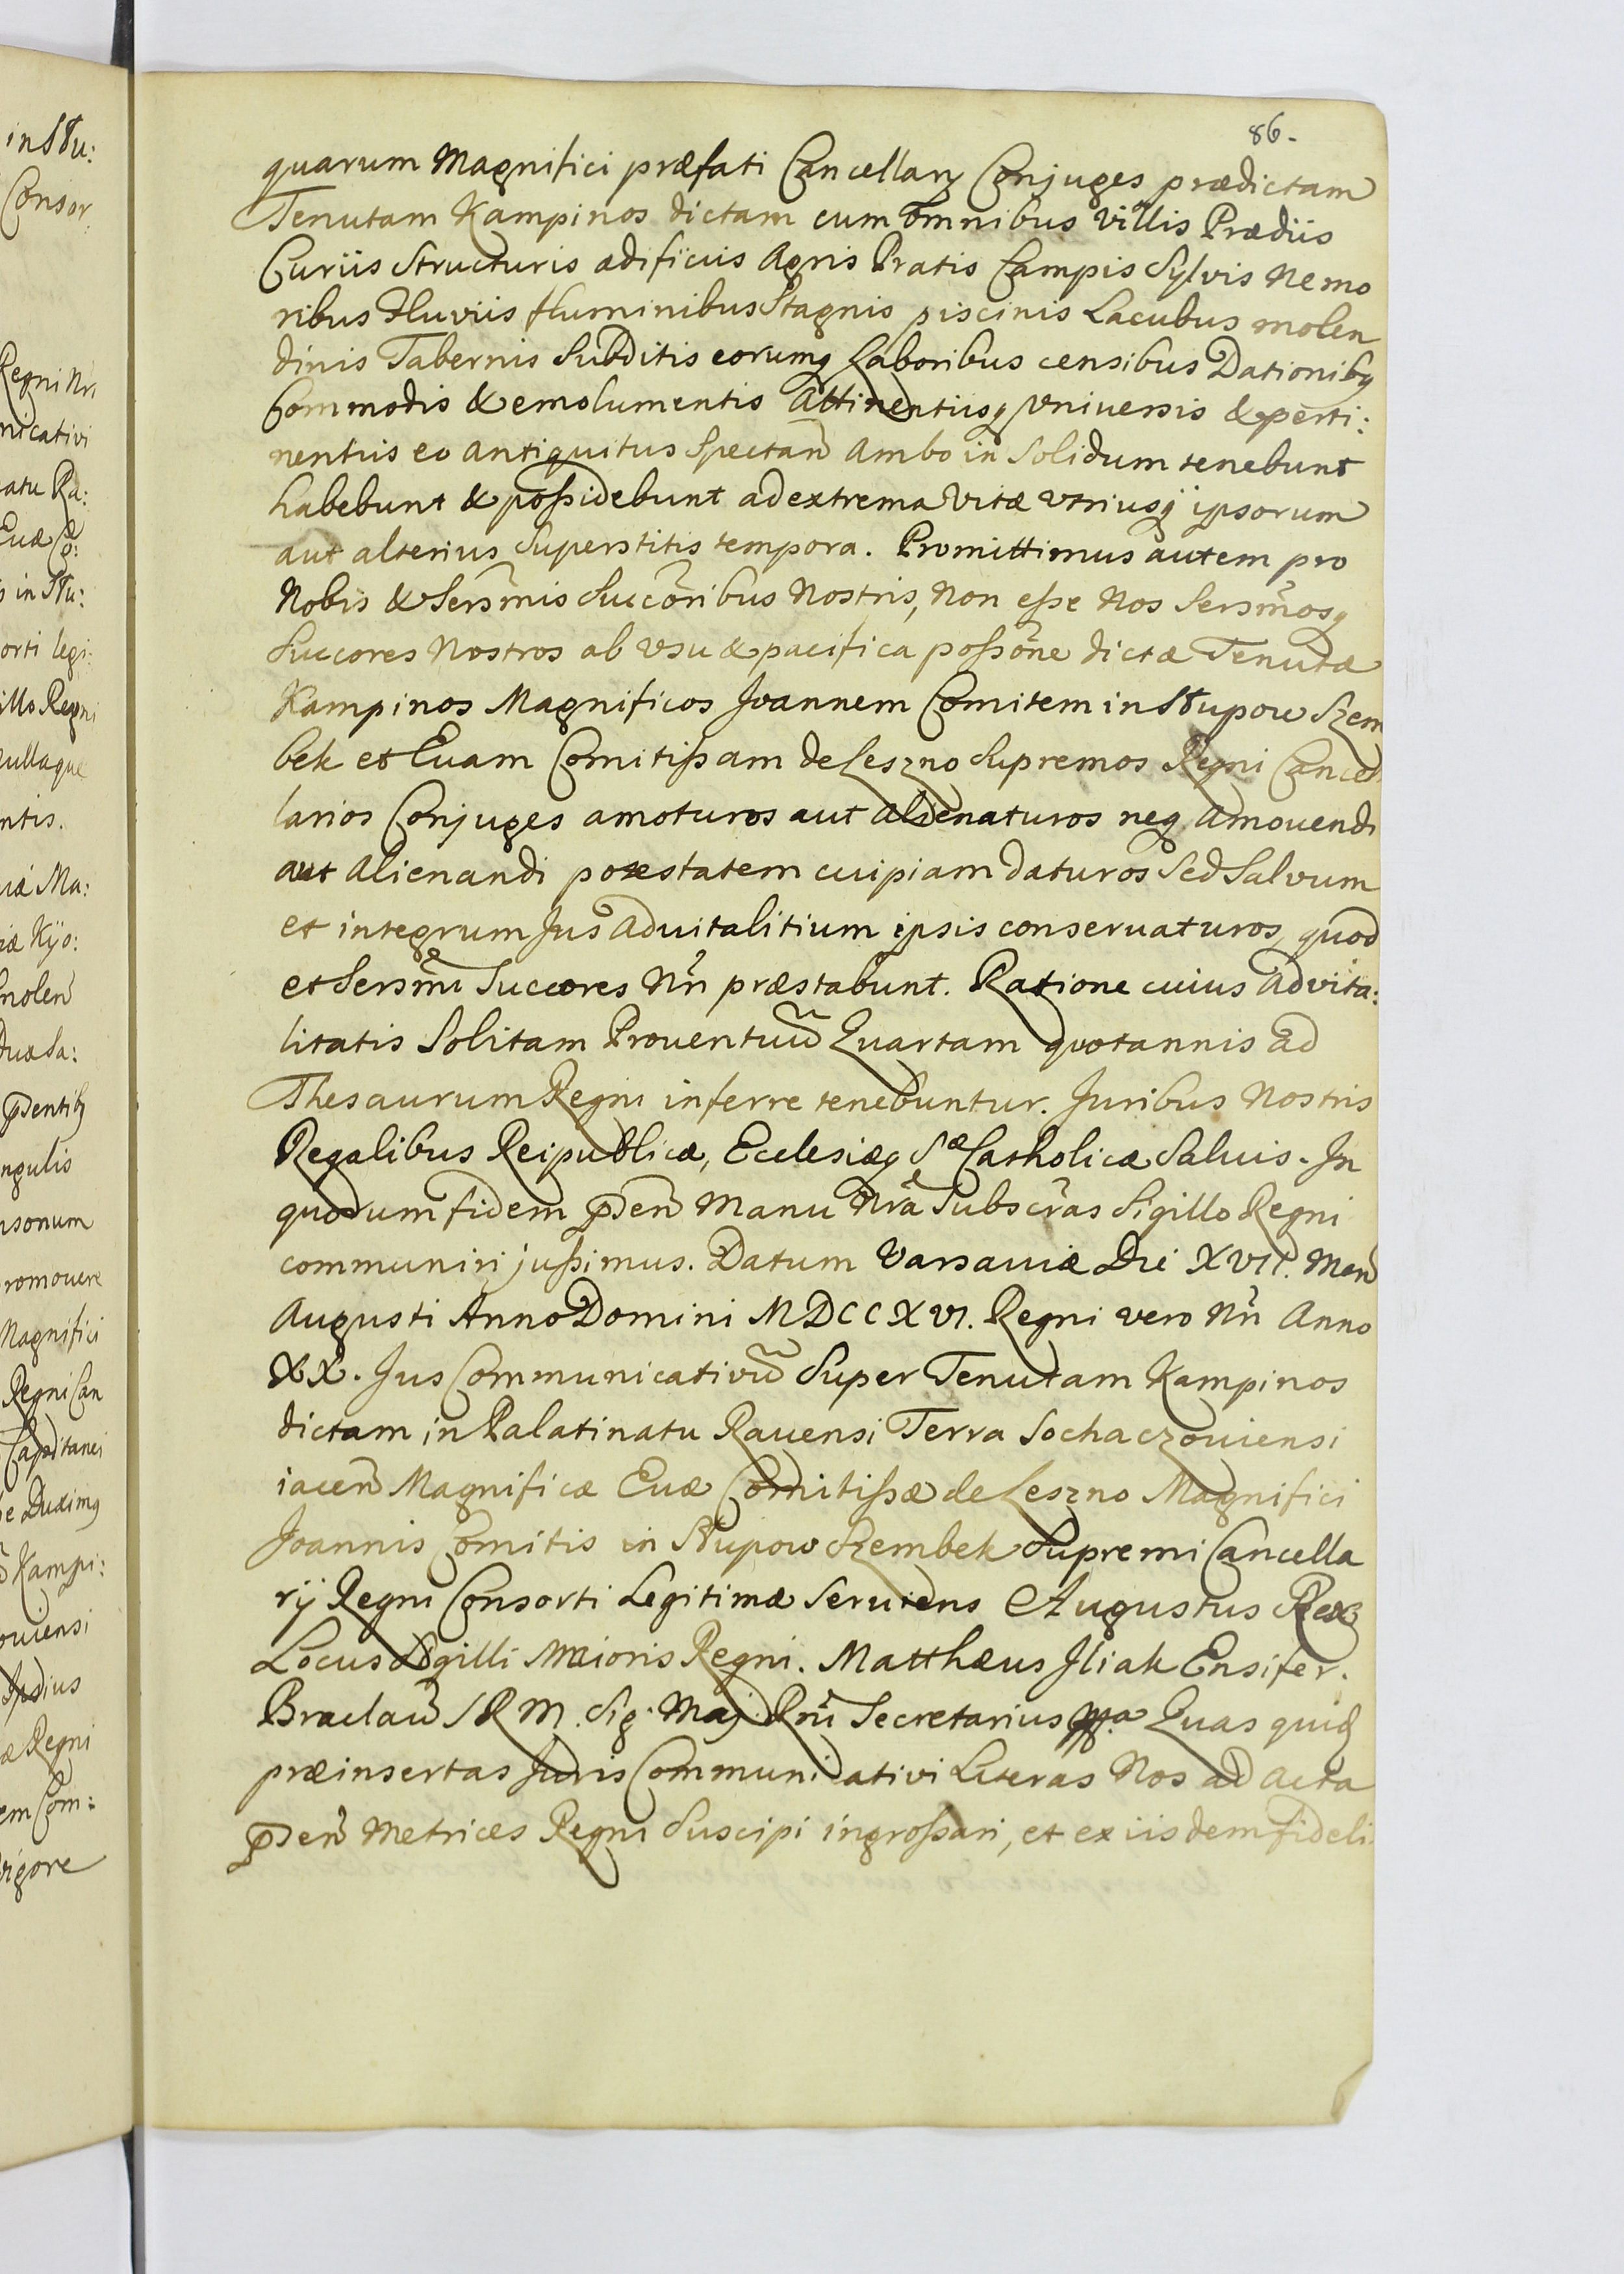 86.
quarum Magnifici præfati Cancellarÿ Conjuges prædictam
Tenutam Kampinos dictam cum omnibus Villis Prædiis
Curiis Structuris ædificiis Agris Pratis Campis Sylvis Nemo
ribus Fluviis fluminibus Stagnis piscinis Lacubus molen
dinis Tabernis Subditis eorumq Laboribus censibus Dationibq
Commodis & emolumentis Attinentiisq Vniuersis & perti:
nentiis eo Antiquitus Spectan̄ Ambo in Solidum tenebunt
habebunt & poßidebunt ad extrema Vitæ Vtriusq ipsorum
aut alterius Superstitis tempora. Promittimus autem pro
Nobis & Sersm̄is Succōribus Nostris, Non eße Nos Sersm̄osq
Succores Nostros ab Vsu & pacifica poßōne dictæ Tenutæ
Kampinos Magnificos Joannem Comitem in Stupow Szem
bek et Euam Comitißam de Leszno Supremos Regni Cancel
larios Conjuges amoturos aut alienaturos neq Amouendi
aut Alienandi potestatem cuipiam daturos Sed Salvum
et integrum Jus Aduitalitium ipsis conseruaturos, quod
et Sersm̄i Succores Nr̄i præstabunt. Ratione cuius Advita:
litatis Solitam Prouentuū Quartam quotannis ad
Thesaurum Regni inferre tenebuntur. Juribus Nostris
Regalibus Reipublicæ, Ecclesiæq Sæ Catholicæ Saluis. In
quorum fidem p̄sen̄ Manu Nr̄a Subscr̄as Sigillo Regni
communiri jußimus. Datum Varsauiæ Die XVII. Men̄
Augusti Anno Domini MDCCXVI. Regni vero Nr̄i Anno
XX. Jus Communicativū Super Tenutam Kampinos
dictam in Palatinatu Rauensi Terra Sochaczouiensi
iacen̄ Magnificæ Euæ Comitißæ de Leszno Magnifici
Joannis Comitis in Stupow Szembek Supremi Cancella
rij Regni Consorti Legitimæ Seruiens Augustus Rex
Locus Sigilli Maioris Regni. Matthæus Iliak Ensifer.
Braclau̅ S R M. Sig. Maj. Rn̄i Secretarius mpa Quas quidē
præinsertas Juris Communicativi Literas Nos ad Acta
p̄sen̄ Metrices Regni Suscipi ingroßari, et ex iisdem fideli